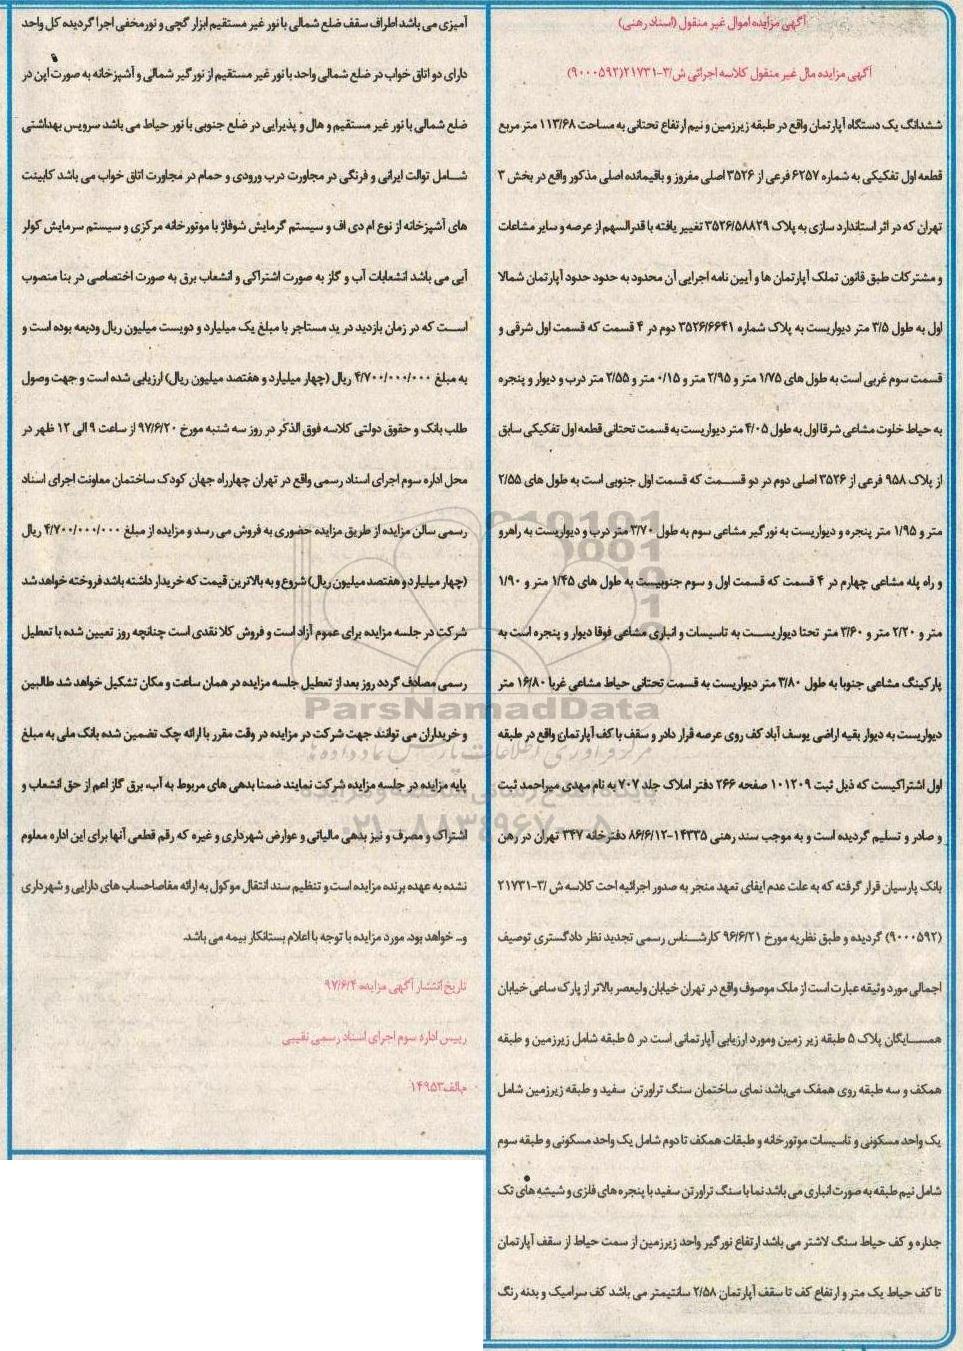 آگهی مزایده اموال غیر منقول (اسناد رهنی)
آگهی مزایده مال غیر منقول کلاسه اجرائی ش/۳-۲۱۷۳۱(۹۰۰۰۵۹۲)
ششدانگ یک دستگاه آپارتمان واقع در طبقه زیرزمین و نیم ارتفاع تحتانی به مساحت ۱۱۳/۶۸ متر مربع
قطعه اول تفکیکی به شماره ۶۲۵۷ فرعی از ۳۵۲۶ اصلی مفروز و باقیمانده اصلی مذکور واقع در بخش ۳
تهران که در اثر استاندارد سازی به پلاک ۳۵۲۶/۵۸۸۲۹ تغییر یافته با قدرالسهم از عرصه و سایر مشاعات
و مشترکات طبق قانون تملک آپارتمان ها و آیین نامه اجرایی آن محدود به حدود حدود آپارتمان شمالا
اول به طول ۳/۵ متر دیواریست به پلاک شماره ۳۵۲۶/۶۶۴۱ دوم در ۴ قسمت که قسمت اول شرقی و
قسمت سوم غربی است به طول های ۱/۷۵ متر و ۲/۹۵ متر و ۰/۱۵ متر و ۲/۵۵ متر درب و دیوار و پنجره
به حیاط خلوت مشاعی شرقا اول به طول ۴/۰۵ متر دیواریست به قسمت تحتانی قطعه اول تفکیکی سابق
از پلاک ۹۵۸ فرعی از ۳۵۲۶ اصلی دوم در دو قسمت که قسمت اول جنوبی است به طول های ۲/۵۵
متر و ۱/۹۵ متر پنجره و دیواریست به نورگیر مشاعی سوم به طول ۳/۷۰ متر درب و دیواریست به راهرو
و راه پله مشاعی چهارم در ۴ قسمت که قسمت اول و سوم جنوبیست به طول های ۱/۴۵ متر و ۱/۹۰
متر و ۲/۲۰ متر و ۳/۶۰ متر تحتا دیواریست به تاسیسات و انباری مشاعی فوقا دیوار و پنجره است به
پارکینگ مشاعی جنوبا به طول ۳/۸۰ متر دیواریست به قسمت تحتانی حیاط مشاعی غربا ۱۶/۸۰ متر
دیواریست به دیوار بقیه اراضی یوسف آباد کف روی عرصه قرار دادر و سقف با کف آپارتمان واقع در طبقه
اول اشتراکیست که ذیل ثبت ۱۰۱۲۰۹ صفحه ۲۶۶ دفتر املاک جلد ۷۰۷ به نام مهدی میراحمد ثبت
و صادر و تسلیم گردیده است و به موجب سند رهنی ۱۴۳۳۵-۸۶/۶/۱۲ دفترخانه ۳۴۷ تهران در رهن
بانک پارسیان قرار گرفته که به علت عدم ایفای تعهد منجر به صدور اجرائیه احت کلاسه ش /۳-۲۱۷۳۱
(۹۰۰۰۵۹۲) گردیده و طبق نظریه مورخ ۹۶/۶/۲۱ کارشناس رسمی تجدید نظر دادگستری توصیف
اجمالی مورد وثیقه عبارت است از ملک موصوف واقع در تهران خیابان ولیعصر بالاتر از پارک ساعی خیابان
همسایگان پلاک ۵ طبقه زیر زمین ومورد ارزیابی آپارتمانی است در ۵ طبقه شامل زیرزمین و طبقه
همکف و سه طبقه روی همفک می‌باشد نمای ساختمان سنگ تراورتن سفید و طبقه زیرزمین شامل
یک واحد مسکونی و تاسیسات موتورخانه و طبقات همکف تا دوم شامل یک واحد مسکونی و طبقه سوم
شامل نیم طبقه به صورت انباری می باشد نما با سنگ تراورتن سفید با پنجره های فلزی و شیشه های تک
جداره و کف حیاط سنگ لاشتر می باشد ارتفاع نورگیر واحد زیرزمین از سمت حیاط از سقف آپارتمان
تا کف حیاط یک متر و ارتفاع کف تا سقف آپارتمان ۲/۵۸ سانتیمتر می باشد کف سرامیک و بدنه رنگ
آمیزی می باشد اطراف سقف ضلع شمالی با نور غیر مستقیم ابزار گچی و نورمخفی اجرا گردیده کل واحد
دارای دو اتاق خواب در ضلع شمالی واحد با نور غیر مستقیم از نورگیر شمالی و آشپزخانه به صورت اپن در
ضلع شمالی با نور غیر مستقیم و هال و پذیرایی در ضلع جنوبی با نور حیاط می باشد سرویس بهداشتی
شامل توالت ایرانی و فرنگی در مجاورت درب ورودی و حمام در مجاورت اتاق خواب می باشد کابینت
های آشپزخانه از نوع ام دی اف و سیستم گرمایش شوفاژ با موتورخانه مرکزی و سیستم سرمایش کولر
آبی می باشد انشعابات آب و گاز به صورت اشتراکی و انشعاب برق به صورت اختصاصی در بنا منصوب
است که در زمان بازدید در ید مستاجر با مبلغ یک میلیارد و دویست میلیون ریال ودیعه بوده است و
به مبلغ ۴/۷۰۰/۰۰۰/۰۰۰ ریال (چهار میلیارد و هفتصد میلیون ریال) ارزیابی شده است و جهت وصول
طلب بانک و حقوق دولتی کلاسه فوق الذکر در روز سه شنبه مورخ ۹۷/۶/۲۰ از ساعت ۹ الی ۱۲ ظهر در
محل اداره سوم اجرای اسناد رسمی واقع در تهران چهارراه جهان کودک ساختمان معاونت اجرای اسناد
رسمی سالن مزایده از طریق مزایده حضوری به فروش می رسد و مزایده از مبلغ ۴/۷۰۰/۰۰۰/۰۰۰ ریال
(چهار میلیارد و هفتصد میلیون ریال) شروع و به بالاترین قیمت که خریدار داشته باشد فروخته خواهد شد
شرکت در جلسه مزایده برای عموم آزاد است و فروش کلا نقدی است چنانچه روز تعیین شده با تعطیل
رسمی مصادف گردد روز بعد از تعطیل جلسه مزایده در همان ساعت و مکان تشکیل خواهد شد طالبین
و خریداران می توانند جهت شرکت در مزایده در وقت مقرر با ارائه چک تضمین شده بانک ملی به مبلغ
پایه مزایده در جلسه مزایده شرکت نمایند ضمنا بدهی های مربوط به آب، برق گاز اعم از حق انشعاب و
اشتراک و مصرف و نیز بدهی مالیاتی و عوارض شهرداری و غیره که رقم قطعی آنها برای این اداره معلوم
نشده به عهده برنده مزایده است و تنظیم سند انتقال موکول به ارائه مفاصاحساب های دارایی و شهرداری
و... خواهد بود. مورد مزایده با توجه با اعلام بستانکار بیمه می باشد.
تاریخ انتشار آگهی مزایده: ۹۷/۶/۴
رییس اداره سوم اجرای اسناد رسمی نقیبی
م‌الف۱۴۹۵۳
ParsNamadData